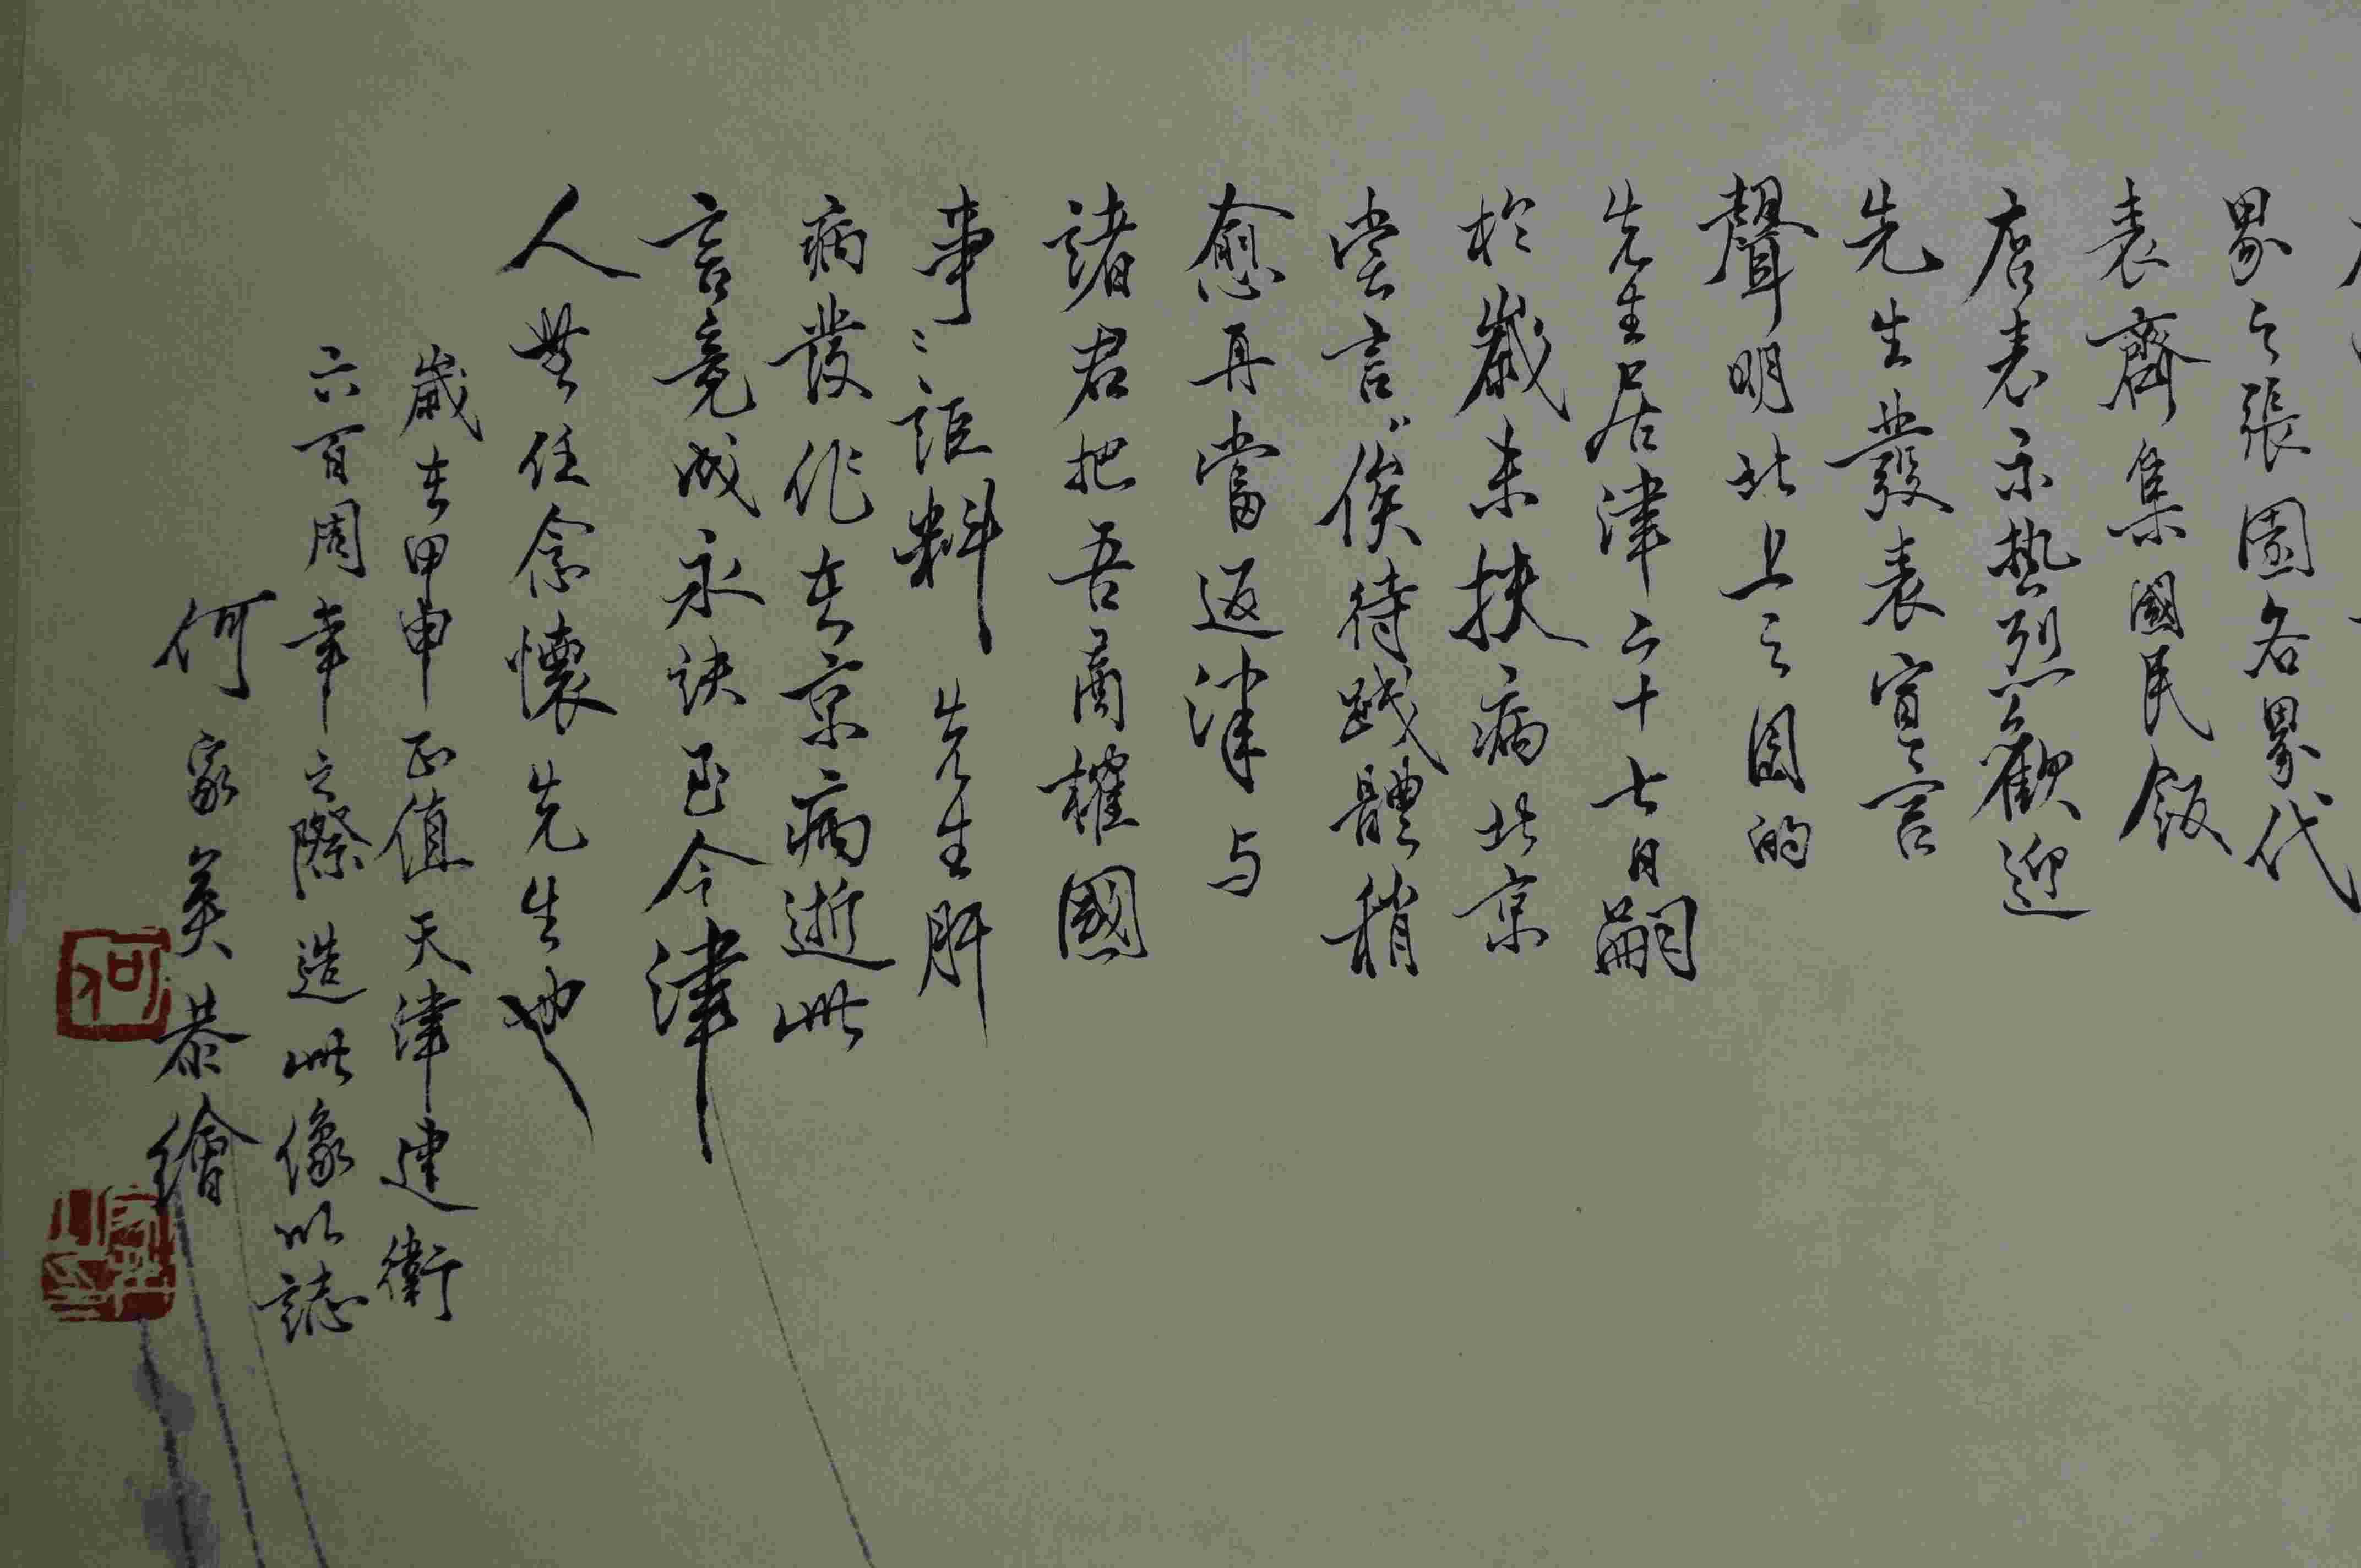 界之張園各界代
表齊集國民飯
店表示熱烈歡迎
先生發表宣言
聲明北上之目的
先生居津二十七日嗣
於歲末扶病北京
嘗言俟待賤體稍
愈再當返津与
諸君把吾商榷國
事〻誰料 先生肝
病發作在京病逝此
言竟成永訣至今津
人無任念懷先生也
歲在甲申正值天津建衛
六百周年之際造此像以誌
何家英恭繪
何